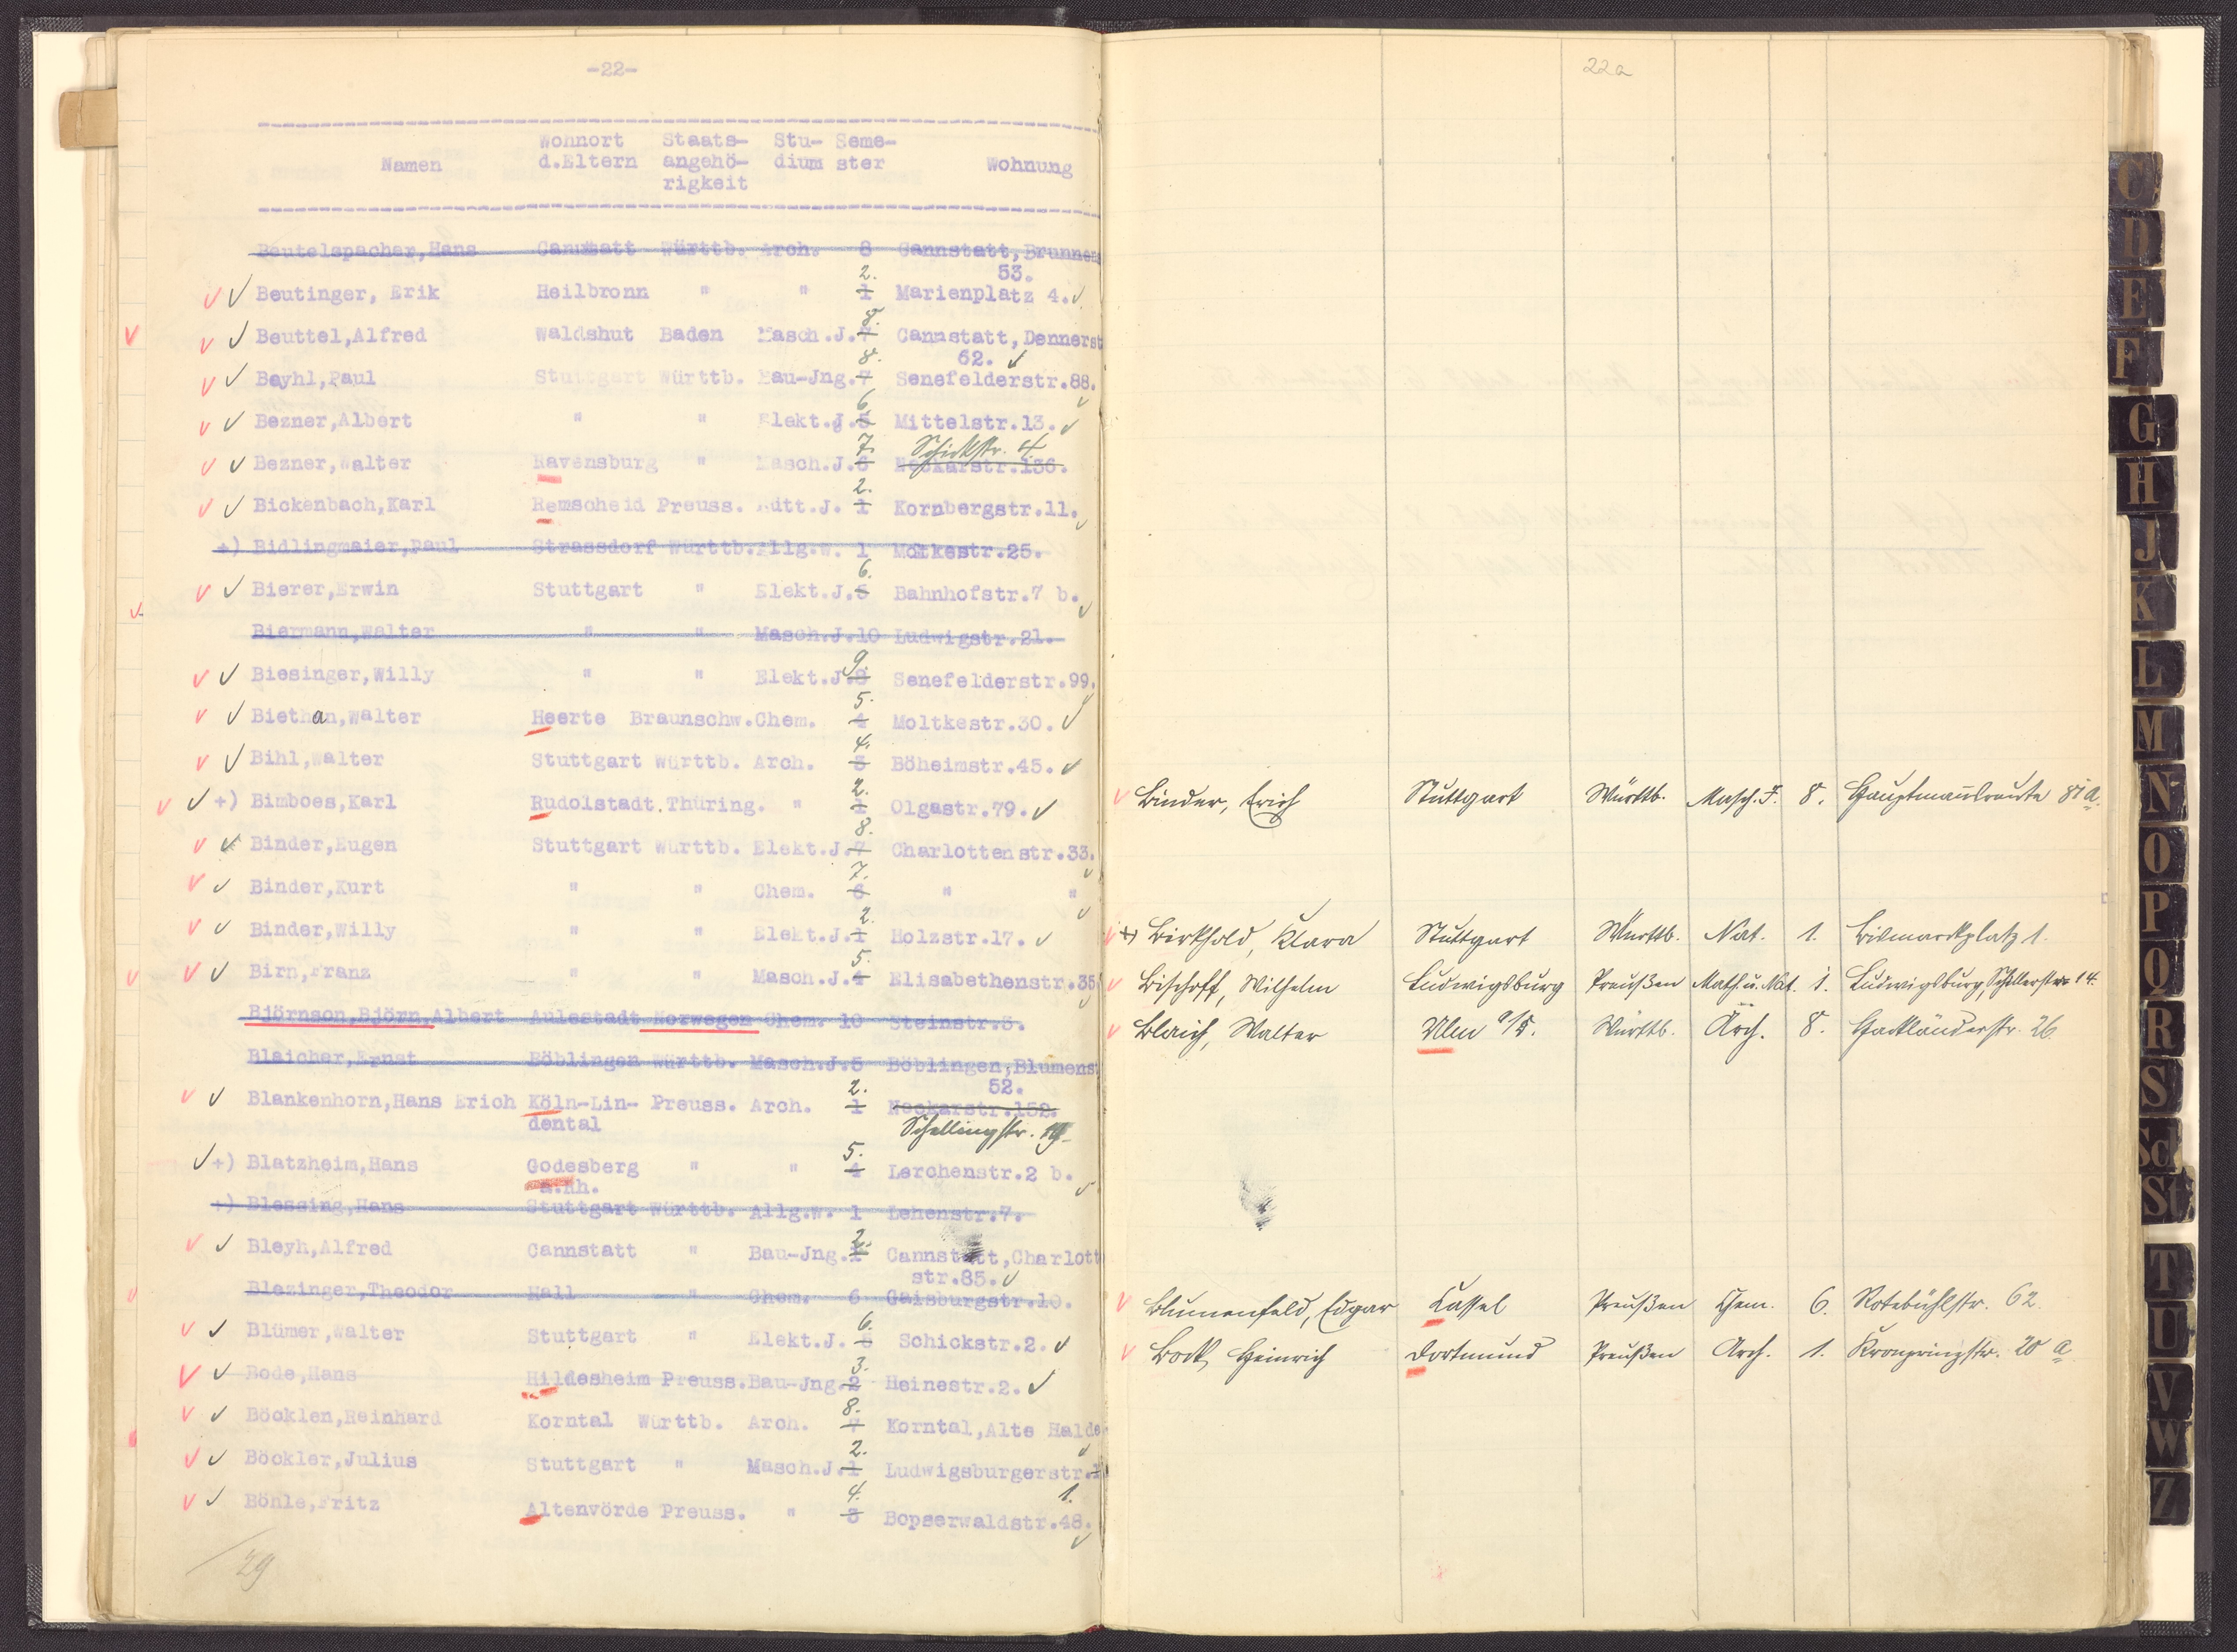 -22-
Namen Wohnort d.Eltern Staats-angehö-rigkeit Stu-dium Seme-ster Wohnung
Beutelspacher,Hans Cannstatt Württb. Arch. 8 Cannstatt,Brunnens
53.
Beutinger, Erik Heilbronn " " 1 2. Marienplatz 4.
Beuttel,Alfred Waldshut Baden Masch.J. 7 8. Cannstatt,Dennerst
62.
Beyhl,Paul Stuttgart Württb. Bau-Jng. 7 8. Senefelderstr.88.
Bezner,Albert " " Elekt.J. 5 6. Mittelstr.13.
Bezner,Walter Ravensburg " Masch.J. 6 7. Neckarstr.136. Schickstr. 4
Bickenbach,Karl Remscheid Preuss. Hütt.J. 1 2. Kornbergstr.11.
+) Bidlingmaier,Paul Strassdorf Württb. Allg.W. 1 Moltkestr.25.
Bierer,Erwin Stuttgart " Elekt.J. 5 6. Bahnhofstr.7 b.
Biermann,Walter " " Masch.J. 10 Ludwigstr.21.
Biesinger,Willy " " Elekt.J. 8 9. Senefelderstr.99.
Biethan,Walter Heerte Braunschw. Chem. 4 5. Moltkestr.30.
Bihl,Walter Stuttgart Württb. Arch. 3 4. Böheimstr.45.
+) Bimboes,Karl Rudolstadt.Thüring. " 1 2. Olgastr.79.
Binder,Eugen Stuttgart Württb. Elekt.J. 7 8. Charlottenstr.33.
Binder,Kurt " " Chem. 6 7. " "
Binder,Willy " " Elekt.J. 1 2. Holzstr.17.
Birn,Franz " " Masch.J. 4 5. Elisabethenstr.35
Björnson,Björn,Albert Aulestadt Norwegen Chem. 10 Steinstr.3.
Blaicher,Ernst Böblingen Württb. Masch.J. 5 Böblingen,Blumenst
52.
Blankenhorn,Hans Erich Köln-Lin- Preuss. Arch. 1 2. Neckarstr.152.
dental Schellingstr. 19
+) Blatzheim,Hans Godesberg " " 4 5. Lerchenstr.2 b.
a.Rh.
+) Blessing,Hans Stuttgart Württb. Allg.W. 1 Lehenstr.7.
Bleyh,Alfred Cannstatt " Bau-Jng. 1 2. Cannstatt,Charlott
str.85.
Blezinger,Theodor Hall " Chem. 6 Gaisburgstr.10.
Blümer,Walter Stuttgart " Elekt.J. 5 6. Schickstr.2.
Bode,Hans Hildesheim Preuss. Bau-Jng. 2 3. Heinestr.2.
Böcklen,Reinhard Korntal Württb. Arch. 7 8. Korntal,Alte Halde
Böckler,Julius Stuttgart " Masch.J. 1 2. Ludwigsburgerstr.1
1.
Böhle,Fritz Altenvörde Preuss. " 3 4. Bopserwaldstr.48.
29
22a
Binder, Erich Stuttgart Württb. Masch.J. 8. Hauptmannsreute 81 a.
+) Birkhold, Klara Stuttgart Württb. Nat. 1. Bismarckplatz 1.
Bischoff, Wilhelm Ludwigsburg Preußen Math u. Nat. 1. Ludwigsburg, Schillerstr. 14.
Blaich, Walter Ulm a/D. Württb. Arch. 8. Hackländerstr. 26.
Blumenfeld, Edgar Cassel Preußen Chem. 6. Rotebühlstr. 62.
Bock, Heinrich Dortmund Preußen Arch. 1. Kronprinzstr. 20 a
C
D
E
F
G
H
J
K
L
M
N
O
P
Q
R
S
Sch
St
T
U
V
W
Z